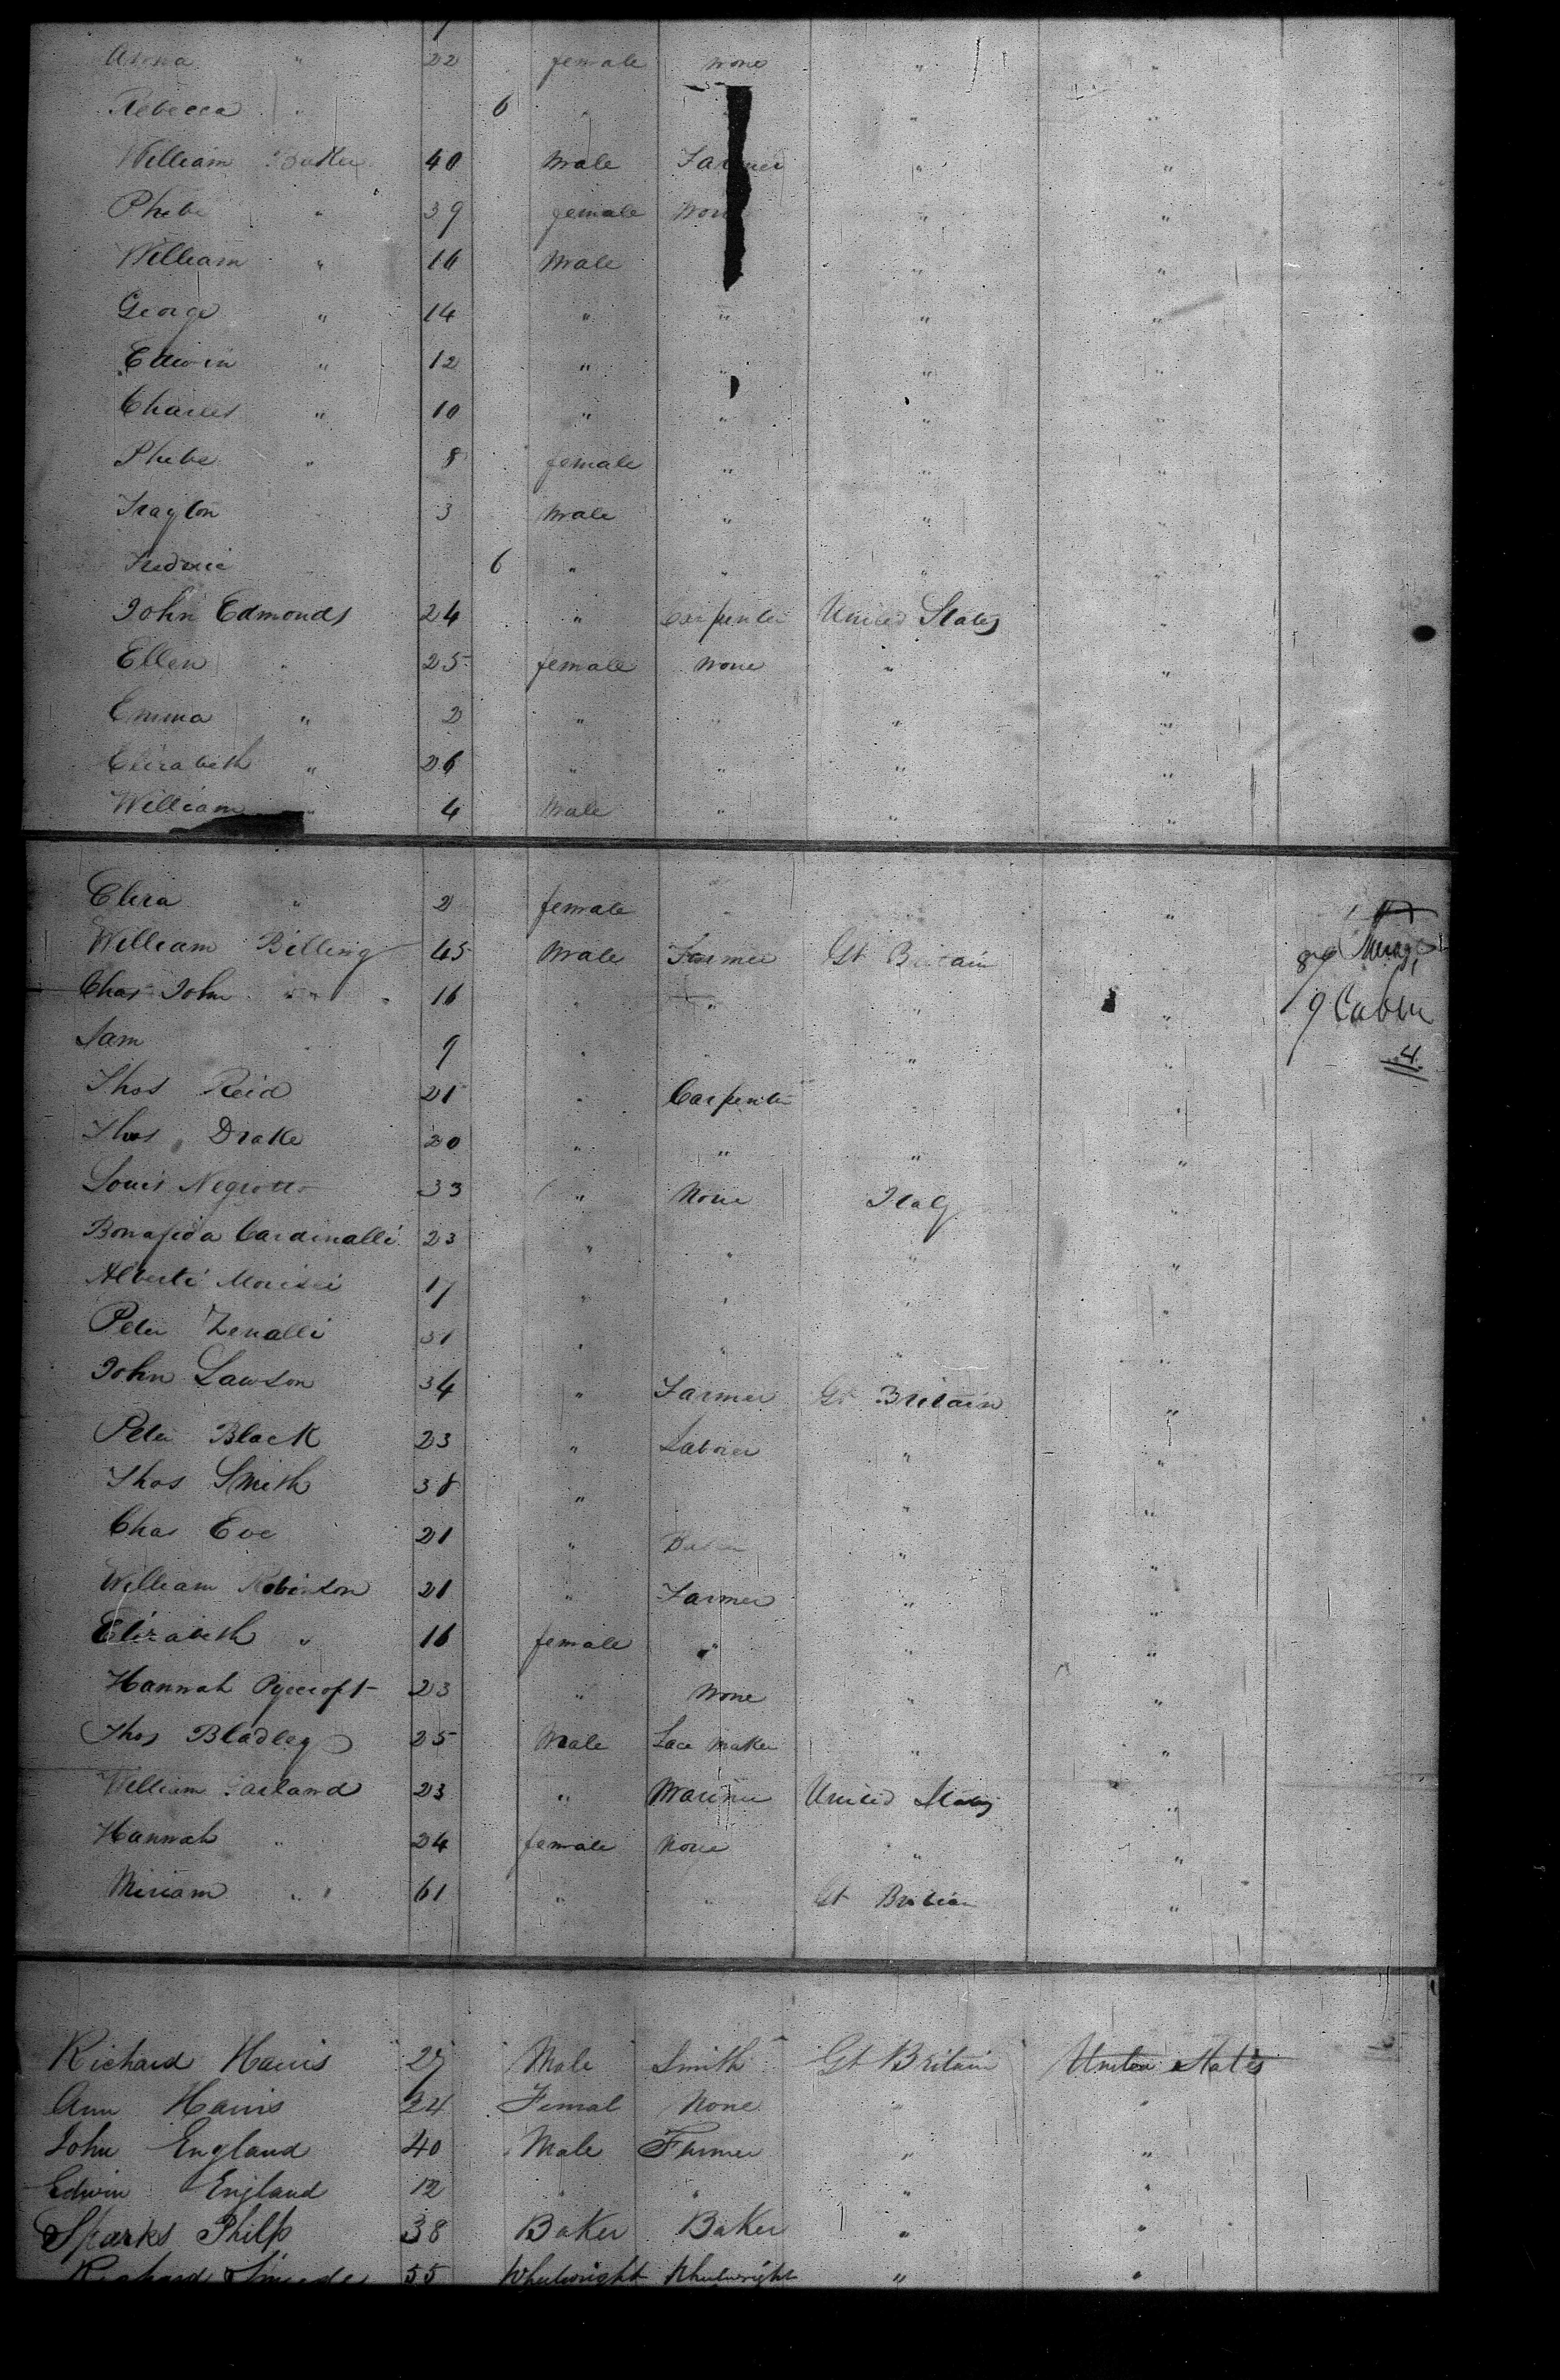 22 female none " "
Rebecca " 6 " " "
William 40 Male Farmer " "
Phebe " 39 female None " "
William " 16 Male " "
George " 14 " " " "
Edwin " 12 " " " "
Charles " 10 " " " "
Phebe " 8 female " " "
3 Male " " "
6 " " " "
John Edmonds 24 " Carpenter United States "
Ellen " 25 female None " "
Emma " 2 " " " "
Elizabeth " 26 " " " "
William " 4 Male " " "
" 2 female " " "
William Billing 45 Male Farmer Gt Britain "
Chas John " 16 " " " "
Sam " 9 " " " "
9 Cabin
4
Thos Reid 21 " Carpenter " "
Thos Drake 20 " " " "
Louis Negrotto 33 " None Italy "
Cardinalli 23 " " " "
Alberti 17 " " " "
Peter Zenalli 31 " " " "
John Lawson 34 " Farmer Gt Britain "
Peter Black 23 " Laborer " "
Thos Smith 38 " " "
Chas Eve 21 " " "
William Robinson 21 " Farmer " "
Elizabeth " 16 female " " "
Hannah Pycroft 23 " None " "
Thos Bladley 25 Male Lace Maker " "
William 23 " Mariner United States "
Hannah " 24 female None " "
Miriam " 61 " " Gt Britain "
Richard Harris 27 Male Smith Gt Britain United States
Ann Harris 24 Femal None " "
John England 40 Male Farmer " "
Edwin England 12 " " " "
Sparks Philp 38 Baker Baker " "
Richard 55 Whelwright Whelwright " "